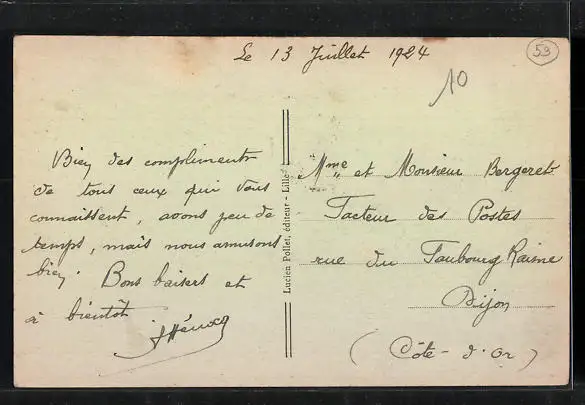 Le 13 Juillet 1924
53
10
Bien des compliments
de tous ceux qui vous
connaissent, avons peu de
temps, mais nous amusons
bien. Bons baisers et
à bientôt
Lucien Pollet, éditeur - Lille
Mme et Monsieur Bergeret
Facteur des Postes
rue du Faubourg Raine
Dijon
(Côte-d'Or)